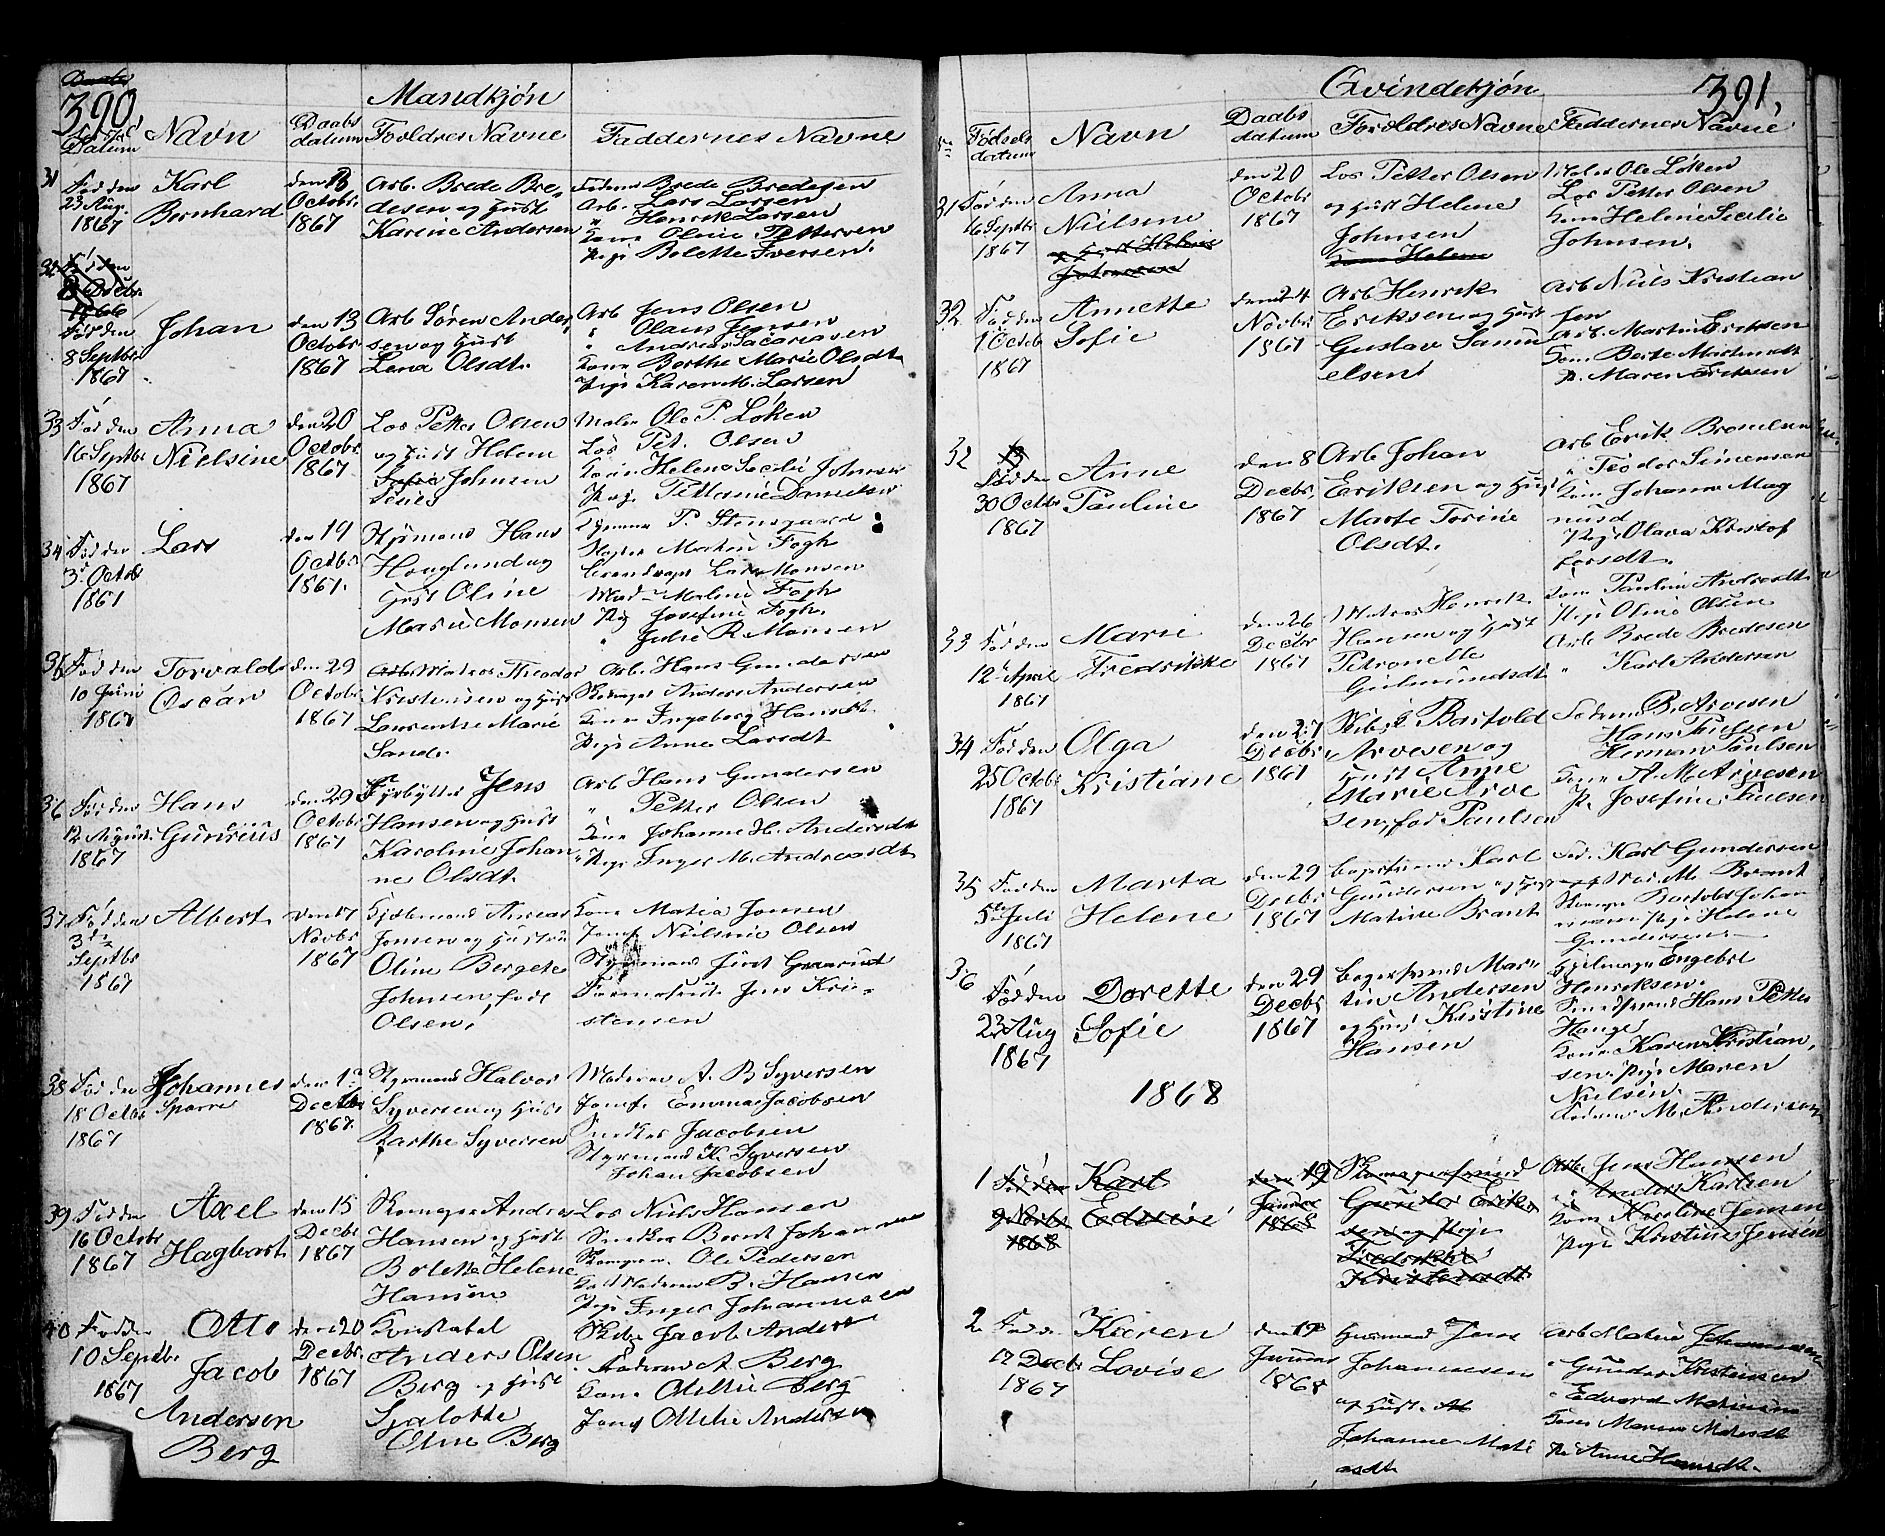 390.
Mandkjøn
Datum
Navn
Daabs
datum
Foroldres Navne
Faddernes Navne
31
Fød den
23 Aug.
1867
Karl
Bernhard
den 13
Octobr.
1867
Arb. Brede Bre-
desen og Hust
Karine Andersen
Brede Bredesen
Arb. Lars Larsen
" Henrik Larsen
Kone Oline Pettersen
Pige Bolette Iversen.
32
Fød den
8 Octbr.
1866
Fød den
8 Septbr
1867
Johan
den 13
Octobr
1867
Arb Søren Ander
sen og Hust
Lena Olsdt.
Arb Jens Olsen
" Olaus Jensen
" Andreas Sacariasen
Kone Berthe Marie Olsdt
Pige Karen M. Larsen
33
Fød den
16 Septbr
1867
Anna
Nielsine
den 20
Octobr
1867
Los Petter Olsen
og Hust Helene
Johnsen
Maler Ole P. Løken
Los Pet. Olsen
Kone Helene Secilie Johnsen
Pige Pettanie Danielsen
34
Fød den
3 Octob
1867
Lars
den 19
Octbr
1867.
Styrmand Hans
Hoglund og
Hust Oline
Marie Monsen
P. Stensgaard
Morten Fogh
Lars Monsen
Mad. Maline Fogh
Pig Josefine Fogh.
" Julie R. Monsen
36
Fød den
10 Juni
1867
Torvald
Oscar
den 29
Octobr
1867
Matros Theodor
Kristensen og Hust
Laurentse Marie
Sand.
Arb. Hans Gundersen
Skomager Anders Andersen
Kone Ingeborg Hansdt.
Pige Anne Larsdt
36
Fød den
12 August
1867
Hans
Gunerius
den 29
Octobr
1867
Fyrbytter Jens
Hansen og Hust
Karoline Johan
ne Olsdt.
Arb Hans Gundersen
" Petter Olsen
Kone Johanne H. Andersdt
" Pige Inger M. Andreasdt
37
Fød den
3die
Septbr
1867
Albert
den 17
Novbr
1867
Andreas
Jonsen og Hustru
Oline Bergete
Johnsen, født
Olsen,
Kone Matia Jonsen
Jomf Nielsine Olsen
Styrmand
Jens Kri-
stensen
38
Fød den
18 Octbr
1867
Johannes
Sparre
den 1.
Decbr
1867.
Styrmand Halvor
Syversen og Hust
Barthe Syversen
Maderam A. B Syversen
Jomf. Emma Jacobsen
Snedker Jacobsen
Styrmand K. Syversen
Johan Jacobsen
39
Fød den
16 Octobr
1867
Axel
Hagbart
den 15
Decbr
1867
Skomager Andreas
Hansen og Hust
Bolette Helene
Hansen
Los Niels Hansen
Snedker Bernt Johannesen
Skomagerm. Ole Pedersen
Maderam B. Hansen
Pige Inger Johannesen
40
Fødden
10 Septbr.
1867
Otto
Jacob
Andersen
Berg
den 20
Decbr.
1867
Konstabel
Anders Olsen
Berg og Hust
Sjalotte
Oline Berg
Jacob Andersen
Maderam A. Berg
Kone Otillie Berg
Jomf Ottelie Andersen
391,
Qvindekjøn
Fødsels
datum
Navn
Daabs
datum
Foroldres Navne
Faddernes Navne
31
Fød den
16 Septbr
1867
Anna
Nielsine
og Hust Helene
Johnsen
den 20
Octobr
1867
Los Petter Olsen
og Hust Helene
Johnsen
Kone Helene
Maler Ole Løken
Los Petter Olsen
Kone Helene Secilie
Johnsen.
32
Fød den
1 Octob
1867
Annette
Sofie
den 24
Novbr
1867
Arb Henrik
Eriksen og Hust
Gustav Samu
elsen
Arb Niels Kristian
sen
Arb. Martin Eriksen
Kone Berte
P. Maren Eriksen
32
Fød den
30 Octbr
1867
Anne
Pauline
den 8
Decbr.
1867
Arb Johan
Eriksen og Hust
Marte Torine
Olsdt.
Arb Erik
" Teodor Simensen
Kone Johanne Mag
nusd
Pige Olava Kristof
forsdt.
33
Fød den
12 April
1867
Marie
Fredrikke
den 26
Decbr
1867
Matros Henrik
Hansen og Hust
Petronelle
Gulmundsdt
Kone Pauline Andersdt
Pige Oline Olsen
Arb Brede Bredesen
" Karl Andersen
34
Fød den
25 Octobr
1867
Olga
Kristiane
den 27
Decbr.
1867
Bartold
Arvesen og
Hust Anne
Marie Arve
sen, for Paulsen
B. Arvesen
Hans Paulsen
Herman Paulsen
Kone A. M. Arvesen
P. Josefine Paulsen
35
Fød den
5te Juli
1867
Marta
Helene
den 29
Decbr
1867
Karl
Gundersen og Hust
Matine Brant
Karl Gundersen
M. Brant
Johan
Pige Helene
Gundersen
36
Fødden
23 Aug
1867
Dorette
Sofie
den 29
Decbr.
1867
Bagersvend Mar-
tin Andersen
og Hust Kristine
Hansen
Engebr
Henriksen.
Hans Petter
Hange
Kone Karen Kristian,
sen. Pige Maren
Nielsen.
M. Andersen
1868
1
Fød den
2 Novbr
1868
Karl
Edvin
den 19
Januar
1868
Skomagersvend
Gunder Erik
sen og Pige
Fredrikke
Kristensdt.
Arb. Jens Hansen
" Anders Karlsen
Kone Karoline Jensen
Pige Kirstine Jensen
2
Fød d
17 Decbr
1867
Karen
Lovise
den 19
Januar
1868
Husmand Jens
Johannesen
og Hust.
Johanne Mati
asdt
Arb Matis Johannesen
" Gunder Kristensen
" Edvard Matiasen
Kone Maren Matisdt
P. Anne Hansdt.